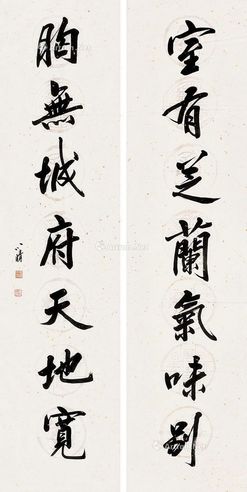 室有芝蘭氣味別
胸無城府天地寬